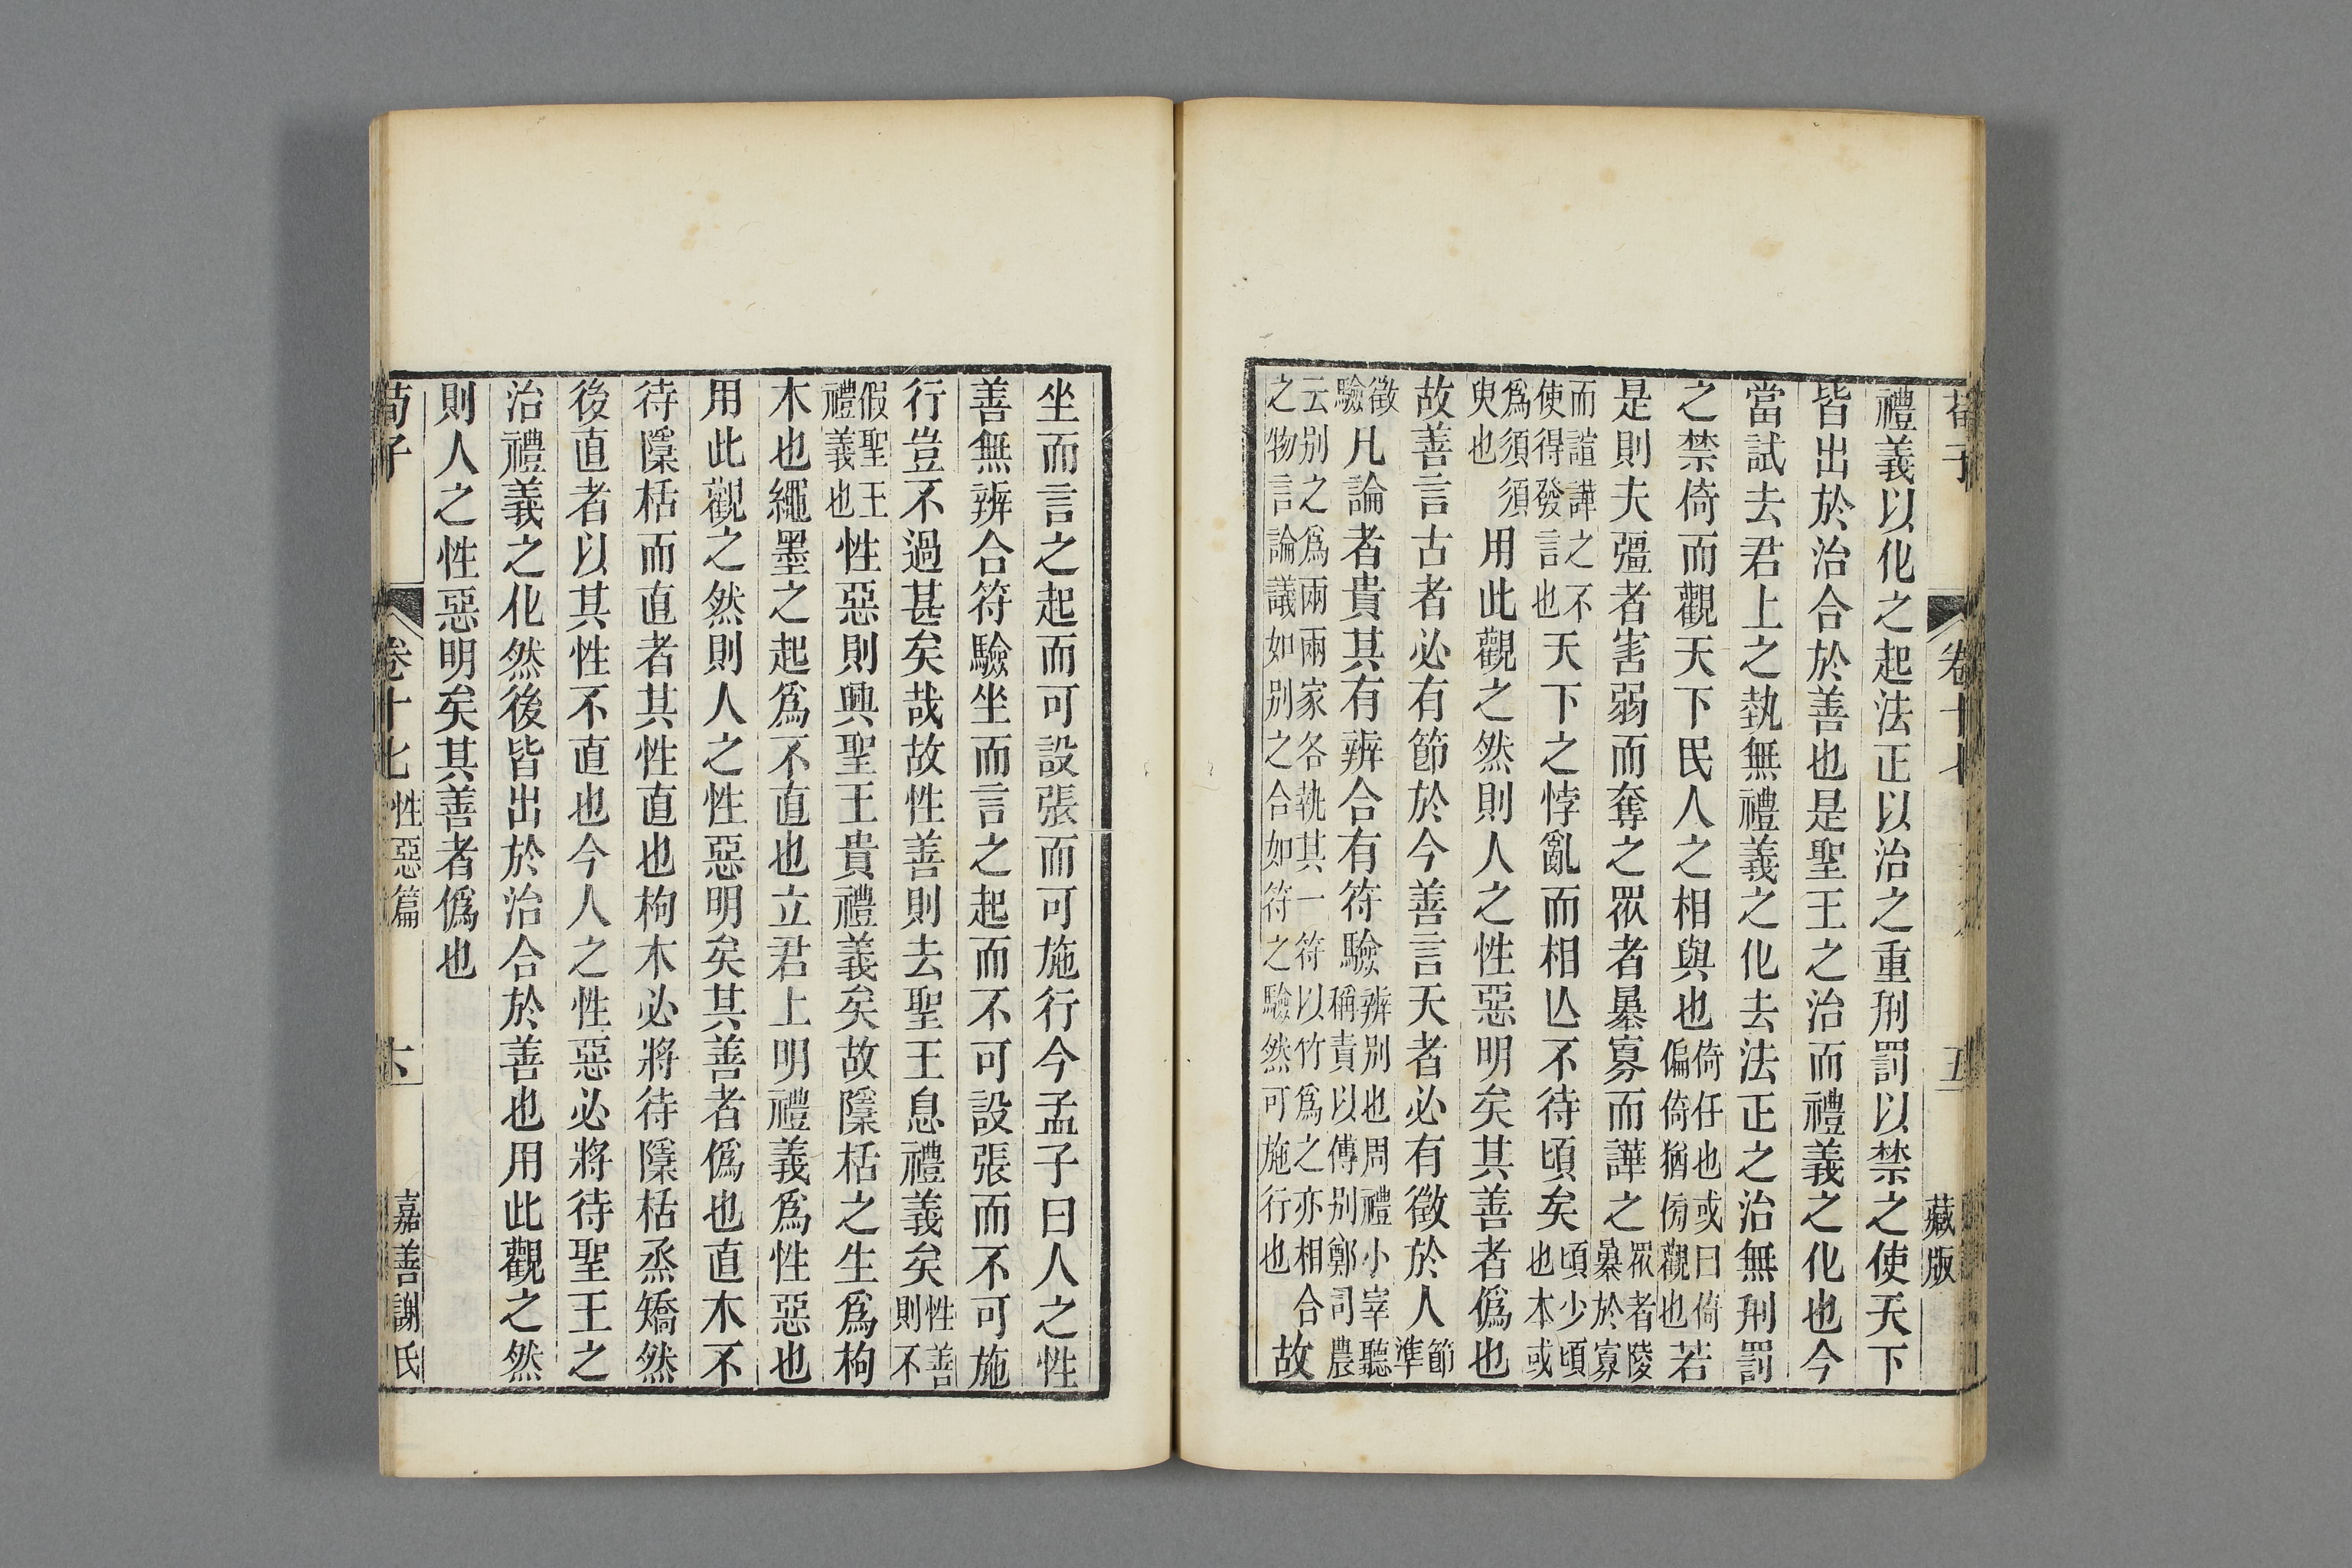 荀子 卷十七 五 藏版
禮義以化之起法正以治之重刑罰以禁之使天下
皆出於治合於善也是聖王之治而禮義之化也今
當試去君上之埶無禮義之化去法正之治無刑罰
之禁倚而觀天下民人之相與也倚仔也或曰倚偏倚猶傍觀也若
是則夫彊者害弱而奪之眾者暴寡而譁之眾者陵暴於寡
而諠譁之不使得發言也天下之悖亂而相亾不待頃矣頃少頃也本或
爲須須臾也用此觀之然則人之性惡明矣其善者僞也
故善言古者必有節於今善言天者必有徵於人節準
徵驗凡論者貴其有辨合有符驗辨別也周禮小宰聽稱責以傅別鄭司農
云别之爲兩兩家各執其一符以竹爲之亦相合之物言論議如别之合如符之驗然可施行也故
坐而言之起而可設張而可施行今孟子曰人之性
善無辨合符驗坐而言之起而不可設張而不可施
行豈不過甚矣哉故性善則去聖王息禮義矣性善則不
假聖王禮義也性惡則興聖王貴禮義矣故檃栝之生爲枸
木也繩墨之起爲不直也立君上明禮義爲性惡也
用此觀之然則人之性惡明矣其善者僞也直木不
待檃栝而直者其性直也枸木必將待檃栝烝矯然
後直者以其性不直也今人之性惡必將待聖王之
治禮義之化然後皆出於治合於善也用此觀之然
則人之性惡明矣其善者僞也
荀子 卷十七 性惡篇 六 嘉善謝氏